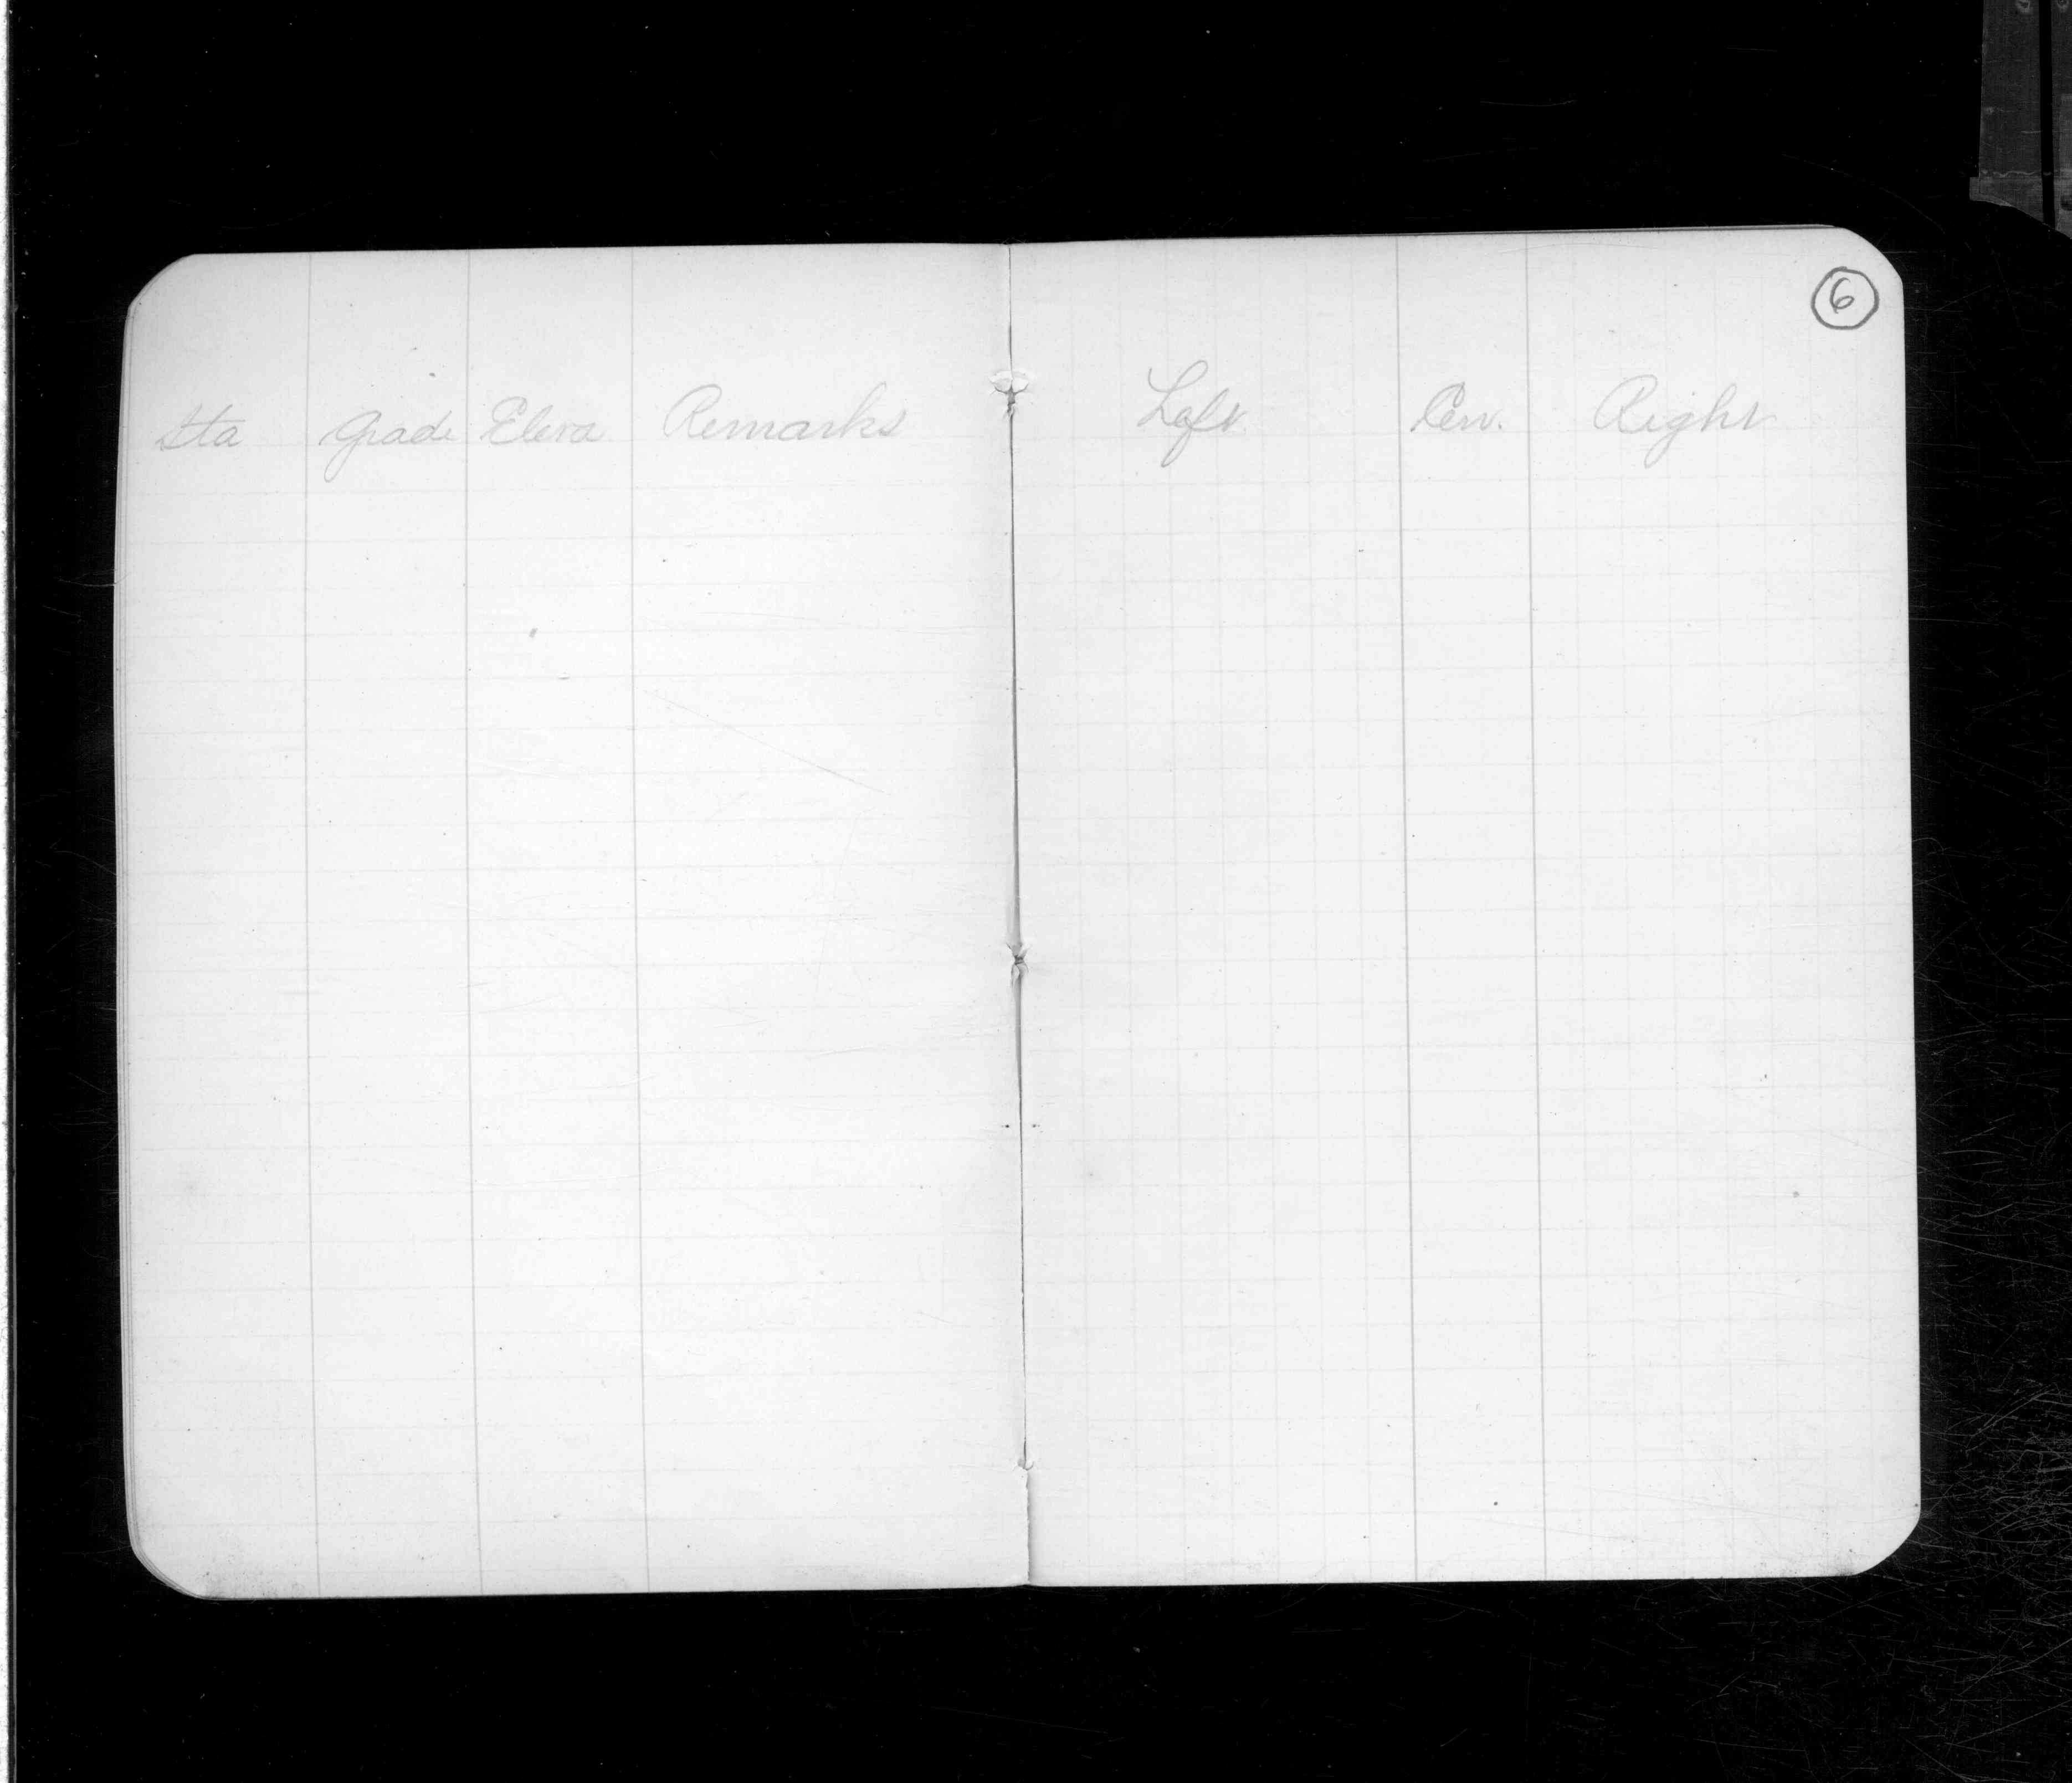 6
Sta Grade Eleva Remarks Left Cen. Right